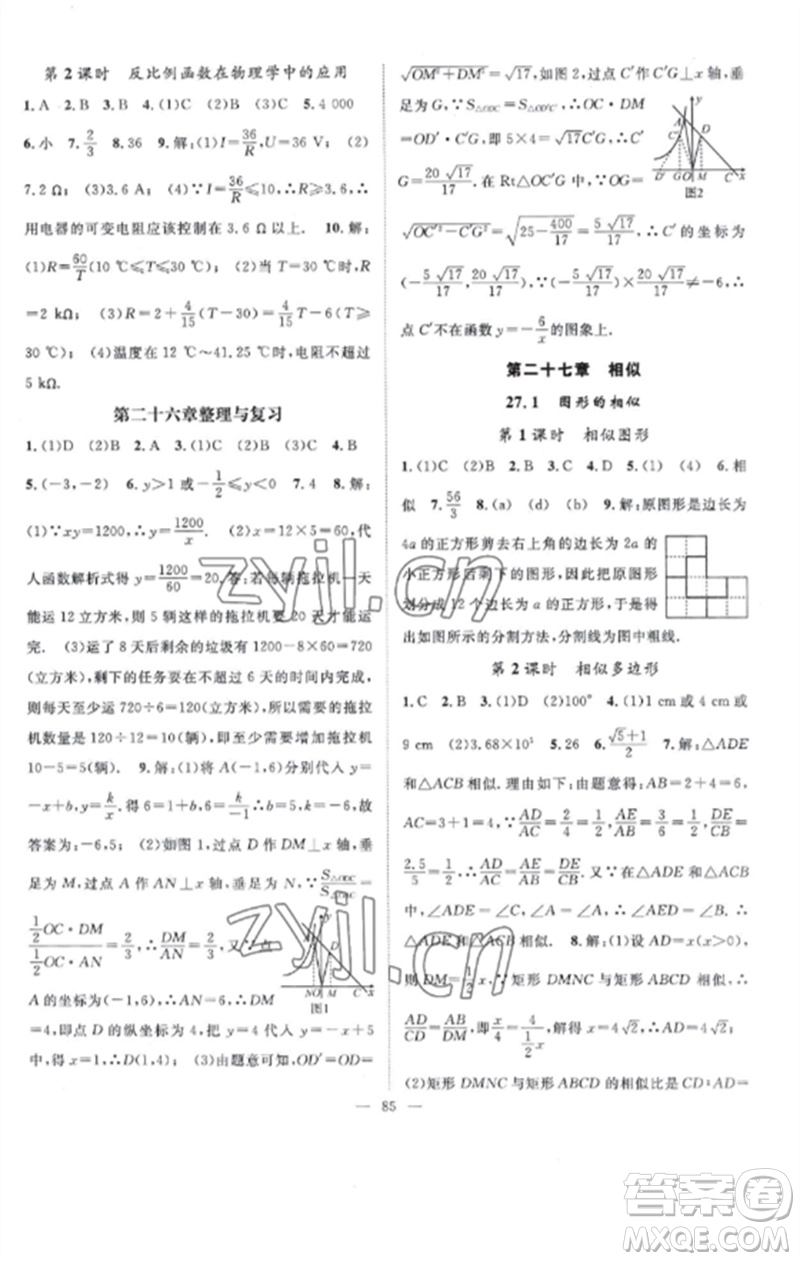 第2课时 反比例函数在物理学中的应用
1.A 2.B 3.B 4.(1)C (2)B (3)C 5.4 000
6.小 7.2/3 8.36 9.解:(1)I=36/R,U=36 V; (2)
7.2 Ω; (3)3.6 A; (4)∵I=36/R≤10,∴R≥3.6,∴
用电器的可变电阻应该控制在 3.6 Ω 以上. 10.解:
(1)R=60/T(10 ℃≤T≤30 ℃);(2)当 T=30 ℃时,R
=2 kΩ; (3)R=2+4/15(T-30)=4/15T-6(T≥
30 ℃);(4)温度在 12 ℃~41.25 ℃时,电阻不超过
5 kΩ.
第二十六章整理与复习
1.(1)D (2)B 2.A 3.(1)B (2)C (3)C 4.B
5.(-3,-2) 6.y>1或-1/2≤y<0 7.4 8.解:
(1)∵xy=1200,∴y=1200/x. (2)x=12×5=60,代
入函数解析式得 y=1200/60=20.答:若每辆拖拉机一天
能运 12 立方米,则 5 辆这样的拖拉机要 20 天才能运
完. (3)运了 8 天后剩余的垃圾有 1200-8×60=720
(立方米),剩下的任务在不超过 6 天的时间内完成,
则每天至少运 720÷6=120(立方米),所以需要的拖拉
机数量是 120÷12=10(辆),即至少需要增加拖拉机
10-5=5(辆). 9.解:(1)将 A(-1,6)分别代入 y=
-x+b,y=k/x,得 6=1+b,6=k/-1∴b=5,k=-6,故
答案为:-6,5; (2)如图 1,过点 D 作 DM⊥x 轴,垂
足为 M,过点 A 作 AN⊥x 轴,垂足为 N,∵S△ODC/S△OAC=
1/2OC·DM/1/2OC·AN=2/3,∴DM/AN=2/3,又∵点
A 的坐标为(-1,6),∴AN=6,∴DM
=4,即点 D 的纵坐标为 4,把 y=4 代入 y=-x+5
中,得 x=1,∴D(1,4); (3)由题意可知,OD′=OD=
y
A
D
NO M C x
图1
√OM²+DM²=√17,如图 2,过点 C′作 C′G⊥x 轴,垂
足为 G,∵S△ODC=S△OD′C′,∴OC·DM
=OD′·C′G,即 5×4=√17C′G,∴C′
G=20√17/17.在 Rt△OC′G 中,∵OG=
√OC′²-C′G²=√25-400/17=5√17/17,∴C′的坐标为
(-5√17/17,20√17/17),∵(-5√17/17)×20√17/17≠-6,∴
点 C′不在函数 y=-6/x的图象上.
y
A
C′ D
D′ GO M C x
图2
第二十七章 相似
27.1 图形的相似
第1课时 相似图形
1.(1)C (2)B 2.B 3.B 4.D 5.(1) (4) 6.相
似 7.56/3 8.(a) (d) (g) 9.解:原图形是边长为
4a 的正方形剪去右上角的边长为 2a 的
小正方形后剩下的图形,因此要把原图形
划分成 12 个边长为 a 的正方形,于是得
出如图所示的分割方法,分割线为图中粗线.
第2课时 相似多边形
1.C 2.B 3.(1)D (2)100° 4.(1)1 cm 或 4 cm 或
9 cm (2)3.68×10⁵ 5.26 6.√5+1/2 7.解:△ADE
和△ACB 相似.理由如下:由题意得:AB=2+4=6,
AC=3+1=4,∵AD/AC=2/4=1/2,AE/AB=3/6=1/2,DE/CB=
2.5/5=1/2,∴AD/AC=AE/AB=DE/CB.又∵在△ADE 和△ACB
中,∠ADE=∠C,∠AED=∠B,∠A=∠A,∴△ADE
和△ACB 相似. 8.解:(1)设 AD=x(x>0),
则 DM=1/2x,∵矩形 DMNC 与矩形 ABCD 相似,∴
AD/CD=AB/DM,即x/4=4/1/2x,解得 x=4√2,∴AD=4√2;
(2)矩形 DMNC 与矩形 ABCD 的相似比是 CD:AD=
— 85 —
zyjl.cn
zyjl.cn
答案卷
MXQE.COM